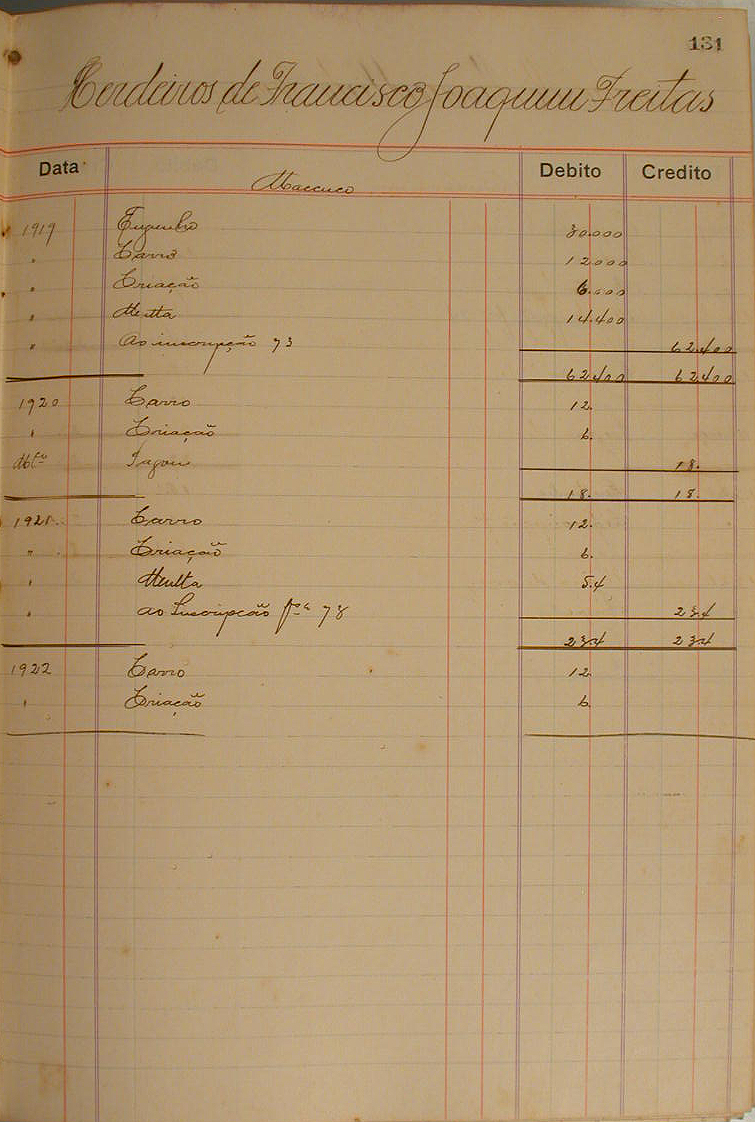 131
Herdeiros de Francisco Joaquim Freitas
Data Debito Credito
Maccuco
1919 Engenho 30.000
" Carro 12.000
" Criação 6.000
" Multa 14.400
" Ao inscripção 73 62.400
62.400 62.400
1920 Carro 12.
" Criação 6.
Mtº Pagou 18.
18. 18.
1921 Carro 12.
" Criação 6.
" Multa 5.4
" ao Inscripção 78 23.4
23.4 23.4
1922 Carro 12.
" Criação 6.